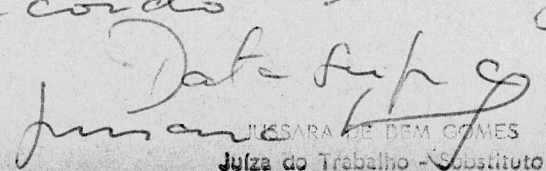 cordo
Data supra
Jussara
JUSSARA DE BEM GOMES
Juíza do Trabalho - Substituto